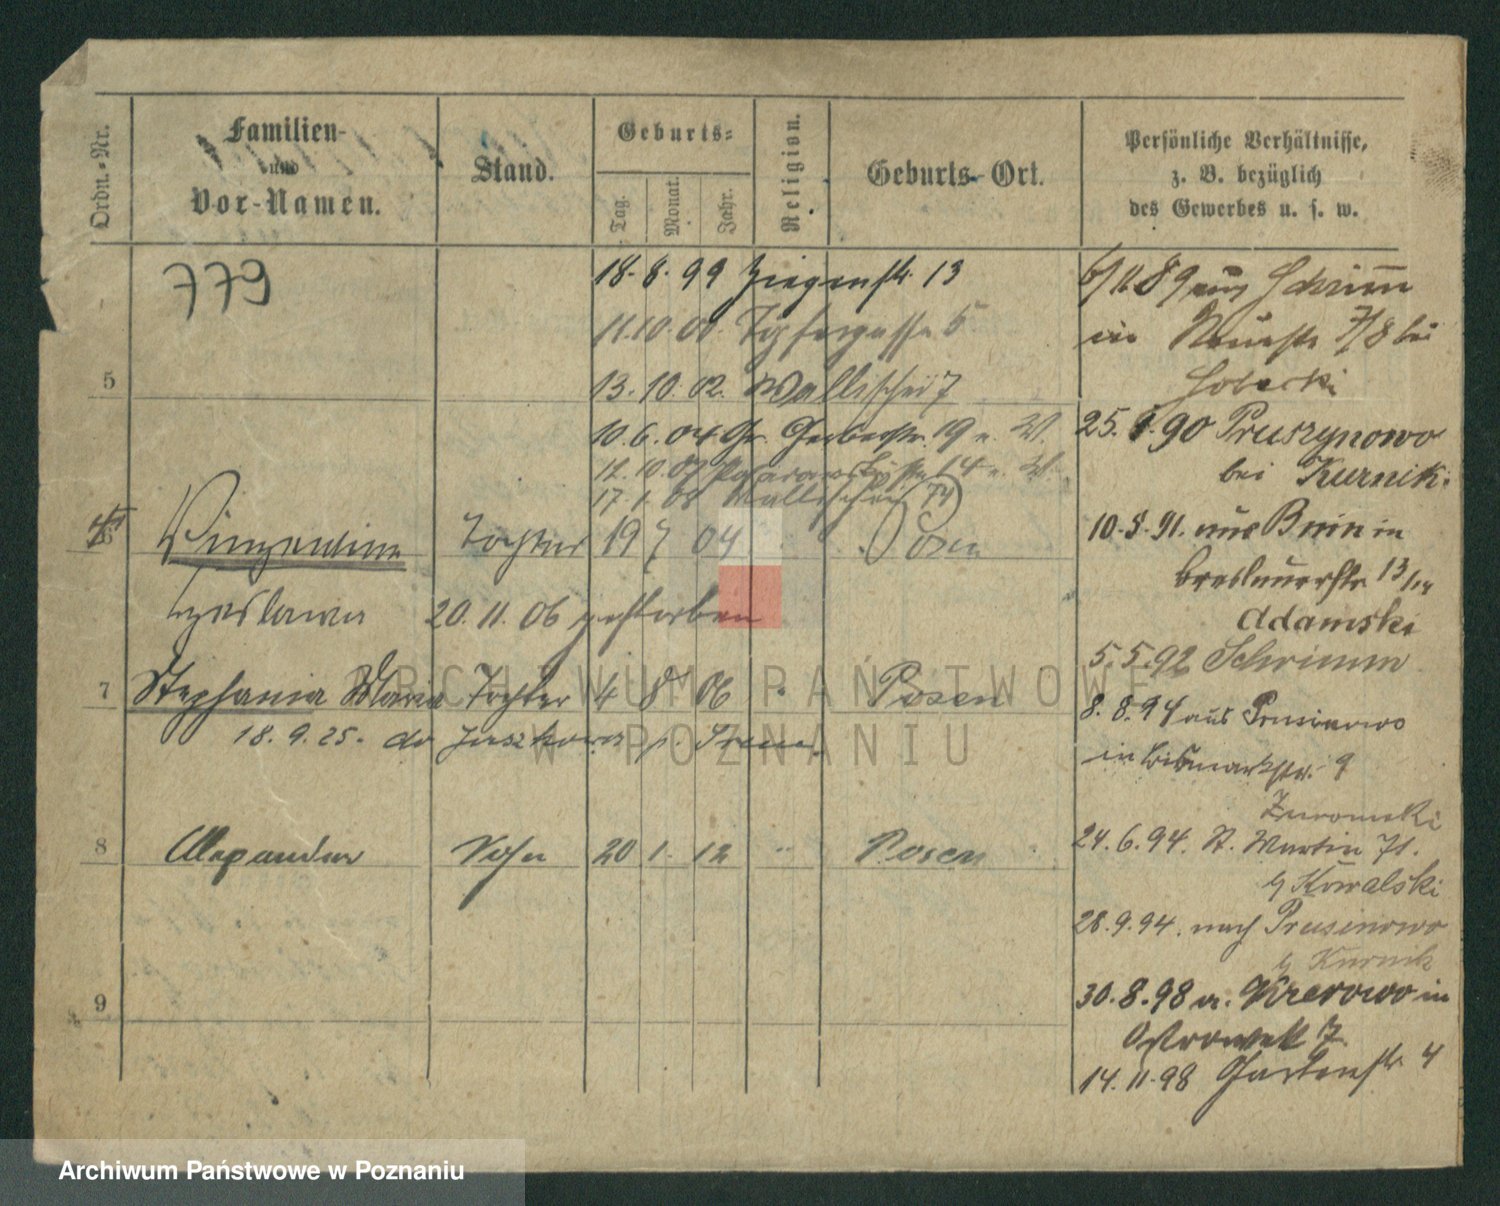 Ordn.-Nr.
Familien-
und
Vor-Namen.
Stand.
Geburts-
Tag.
Monat.
Jahr.
Religion.
Geburts-Ort.
Persönliche Verhältnisse,
z. B. bezüglich
des Gewerbes u. s. w.
779
18. 8. 99 Ziegenstr. 13
11.10.00. Töpfergasse 5
5
13. 10. 02. Wallischei 7
10. 6. 04 Gr. Gerberstr. 19
12. 10. 07 14
17. 1. 08 Wallischei
6
Tochter 19 7 04 Posen
Czeslawa 20. 11. 06 gestorben
7 Stephania Maria Tochter 4 8 06 " Posen
18. 9. 25. do
8 Alexander Sohn 20 1. 12 " Posen
9
6/11.89 aus Schrimm
in 7/8 bei
25. 90 Pruszynowo
bei Kurnik.
10. 8. 91. aus Bnin in
Breslauerstr. 13
Adamski
5. 5. 92 Schrimm
8. 8. 94 aus Prusinowo
in Bismarkstr. 9
Zuromski
24. 6. 94. St. Martin 71.
b/ Kowalski
28. 9. 94. nach Prusinowo
b/ Kurnik
30. 8. 98 a. Krerowo in
Ostrowek 7
14. 11. 98 Gartenstr. 4
ARCHIWUM PAŃSTWOWE
W POZNANIU
Archiwum Państwowe w Poznaniu